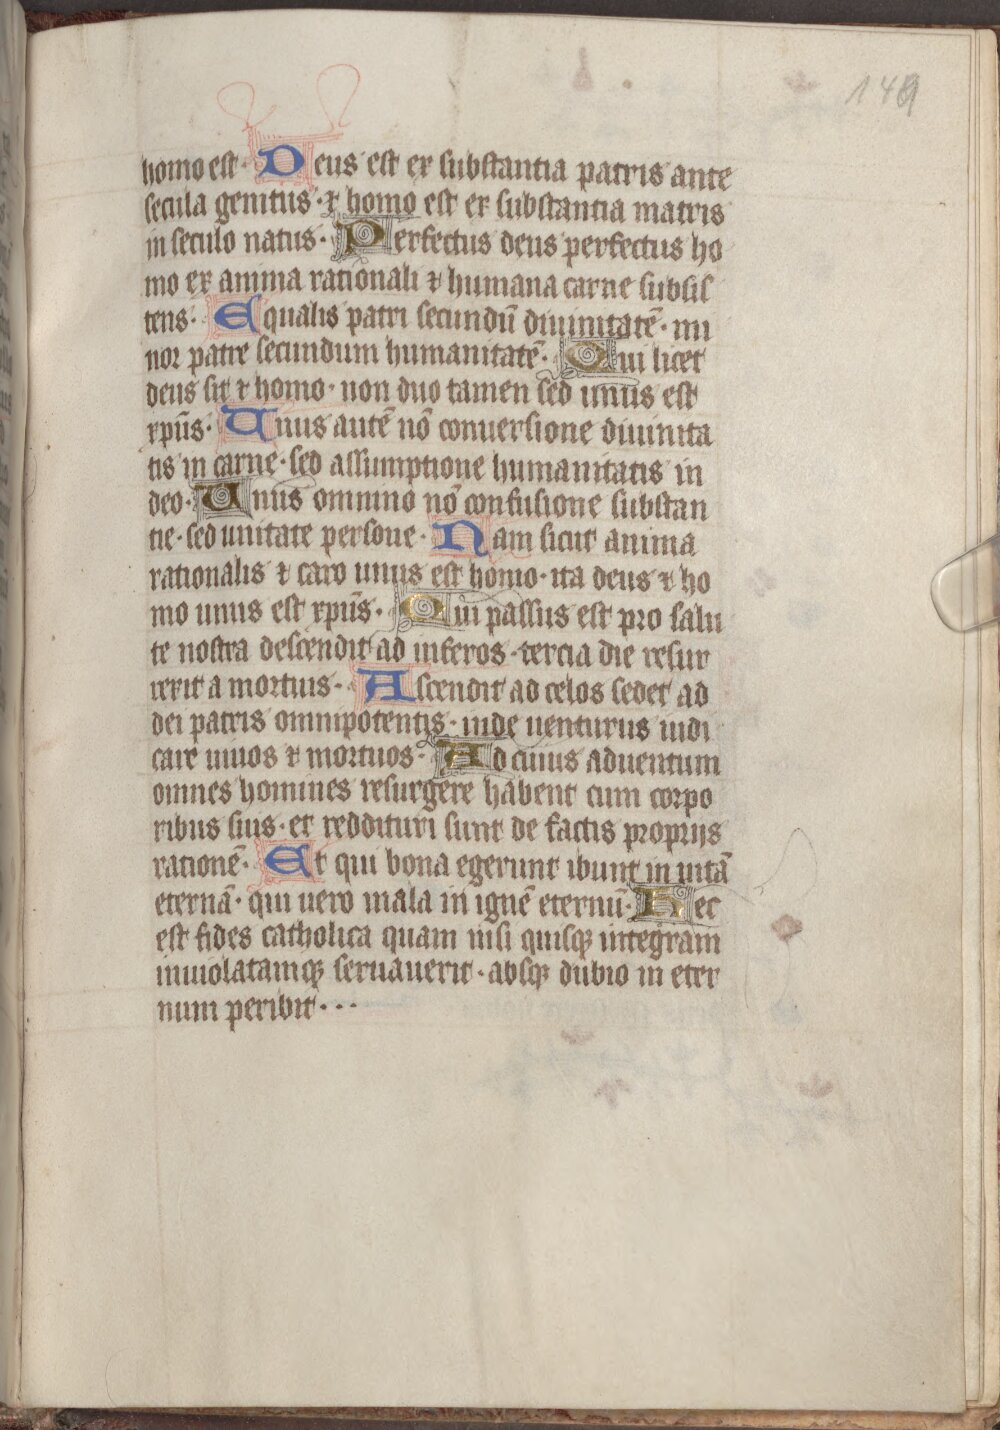 149
homo est· Deus est ex substantia patris ante
secula genitus· ⁊ homo est ex substantia matris
in seculo natus· Perfectus deus perfectus ho
mo ex anima rationali ⁊ humana carne subsis
tens· Equalis patri secundū diuinitatē· mi
nor patre secundum humanitatē· Qui licet
deus sit ⁊ homo· non duo tamen sed unus est
xpūs· Unus autē nō conuersione diuinita
tis in carne· sed assumptione humanitatis in
deo· Unus omnino nō confusione substan
tie· sed unitate persone· Nam sicut anima
rationalis ⁊ caro unus est homo· ita deus ⁊ ho
mo unus est xpūs· Qui passus est pro salu
te nostra descendit ad inferos· tercia die resur
rexit a mortuis· Ascendit ad celos sedet ad
dei patris omnipotentis· inde uenturus iudi
care uiuos ⁊ mortuos· Ad cuius aduentum
omnes homines resurgere habent cum corpo
ribus suis· et reddituri sunt de factis proprijs
rationē· Et qui bona egerunt ibunt in uitā
eternā· qui uero mala in ignē eternū· Hec
est fides catholica quam nisi quisqꝫ integram
inuiolatamqꝫ seruauerit· absqꝫ dubio in eter
num peribit···